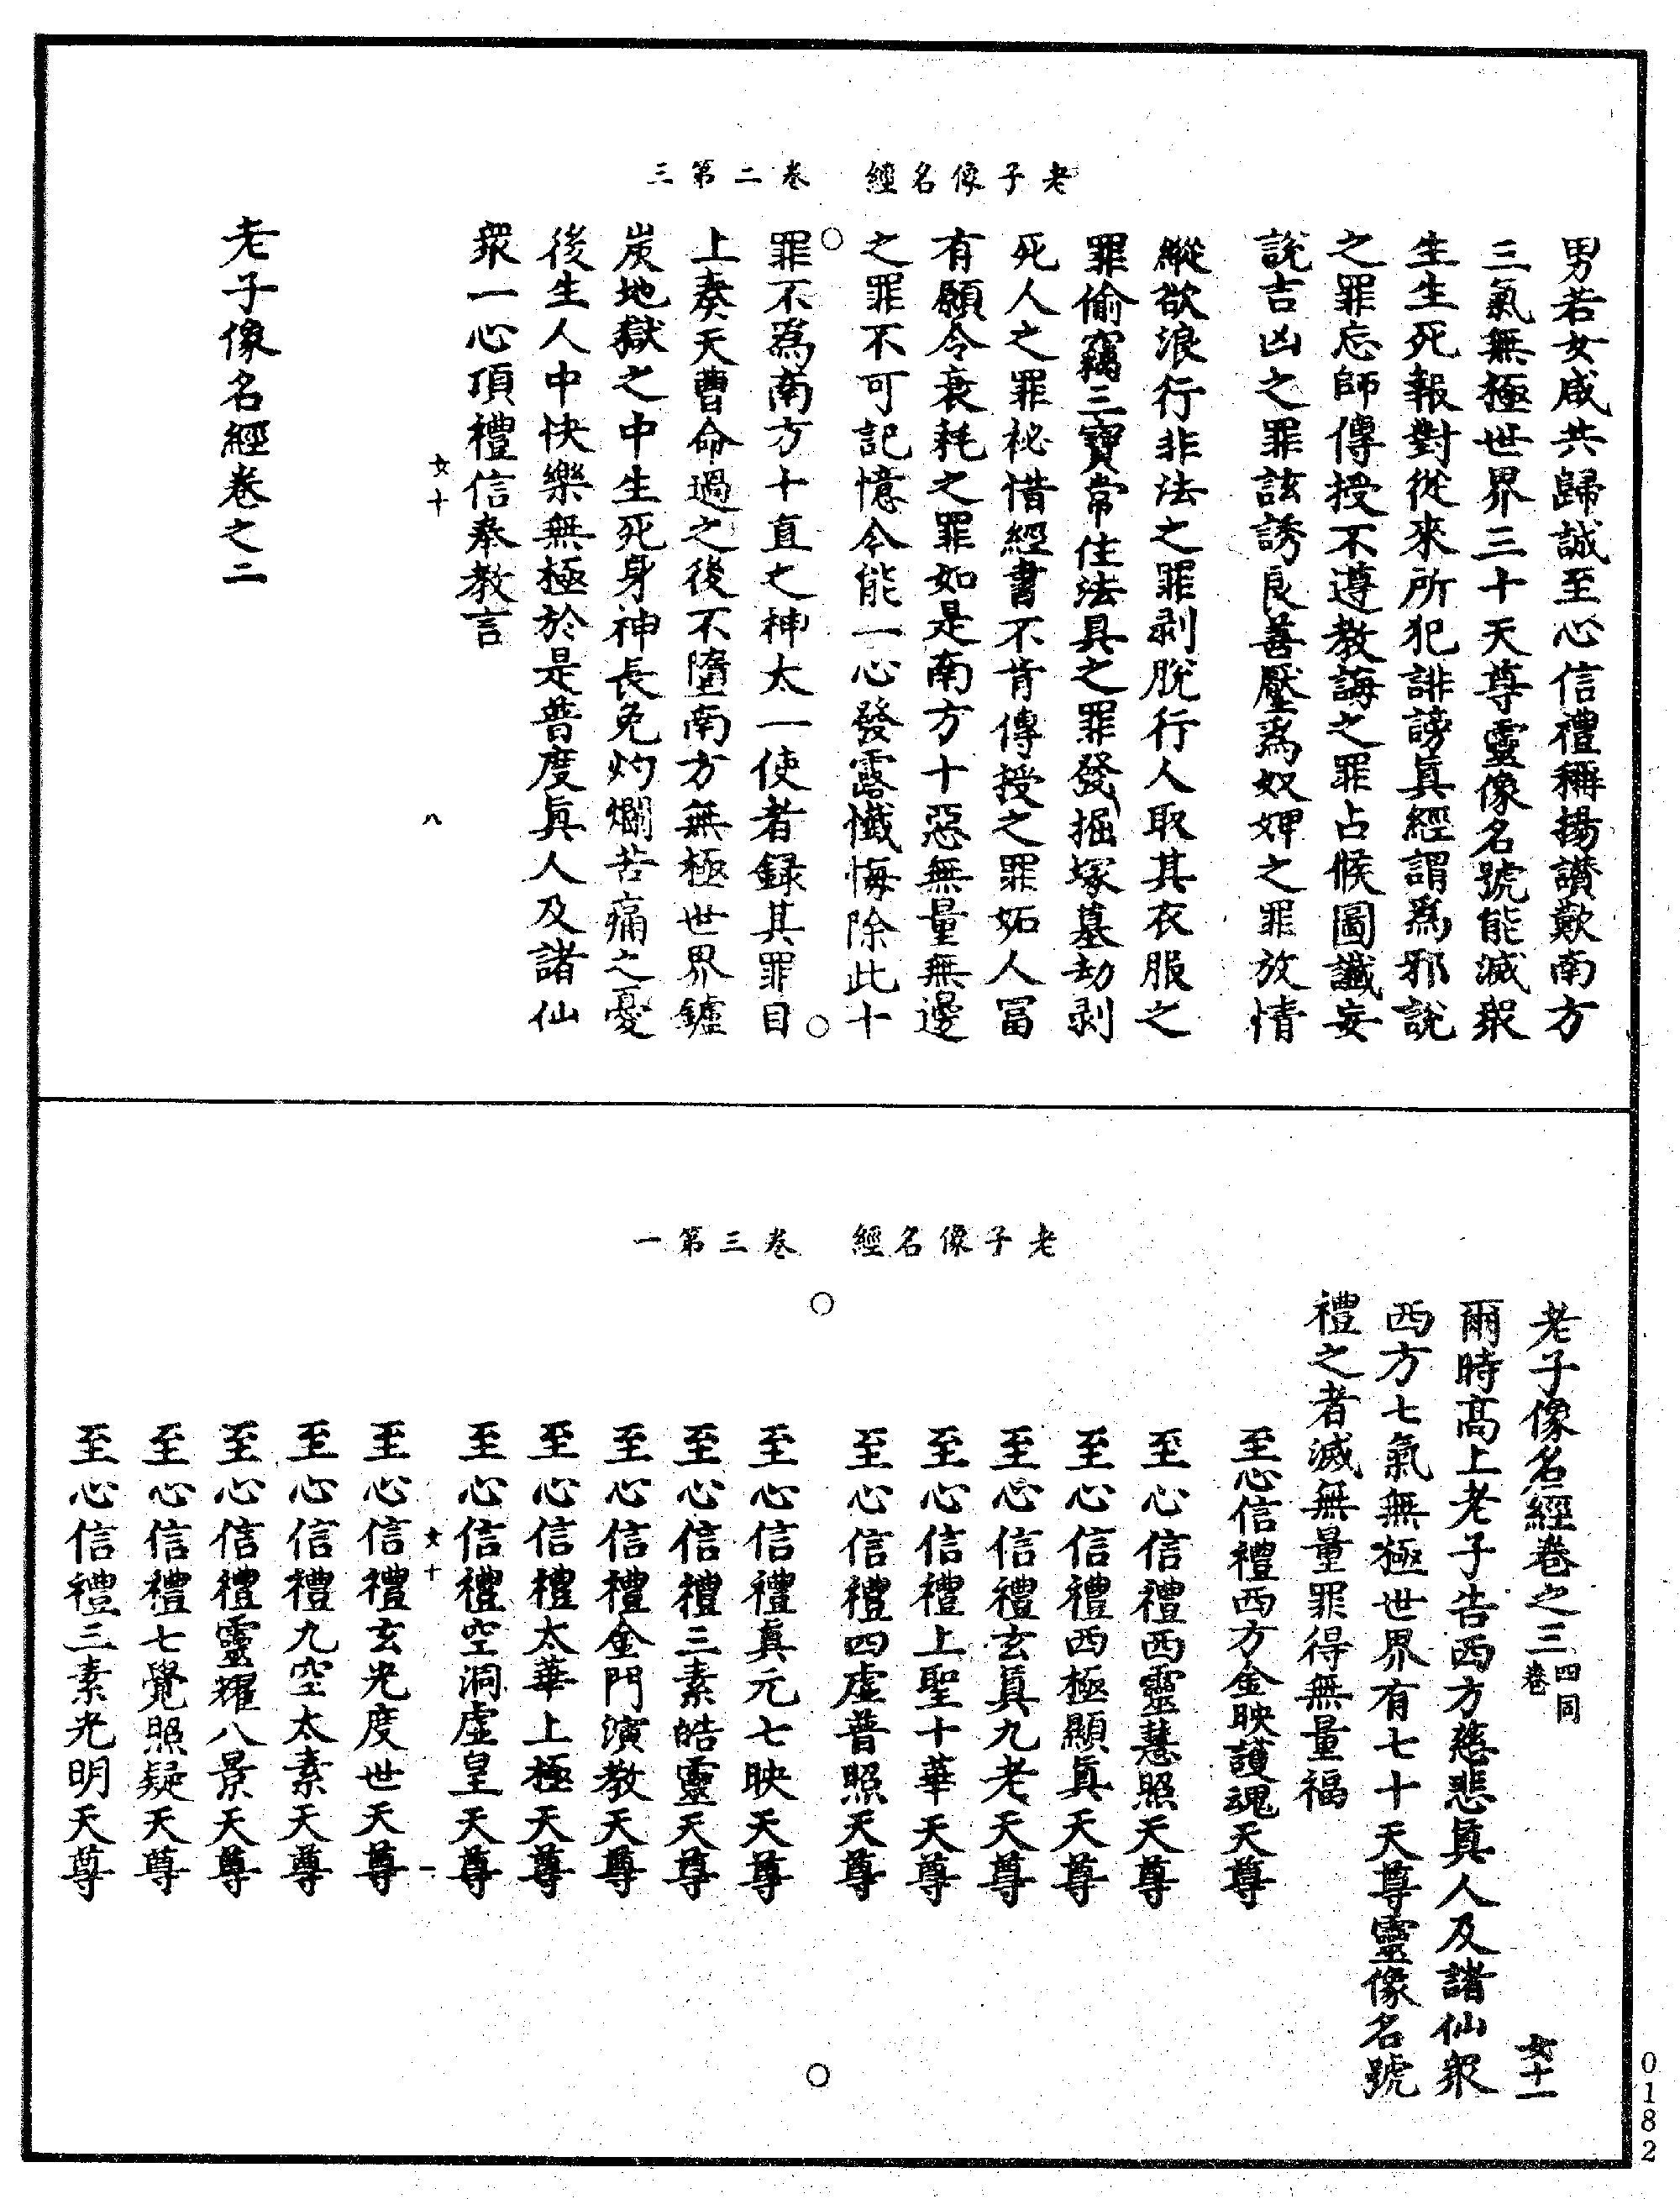 老子像名經　卷二第三
男若女咸共歸誠至心信禮稱揚讃歎南方
三氣無極世界三十天尊靈像名號能滅衆
生生死報對從來所犯誹謗眞經謂爲邪說
之罪忘師傳授不遵教誨之罪占候圖讖妄
說吉凶之罪詃誘良善壓爲奴婢之罪放情
縱欲浪行非法之罪剥脫行人取其衣服之
罪偷竊三寶常住法具之罪發掘塚墓劫剥
死人之罪祕惜經書不肯傳授之罪妬人冨
有願令衰耗之罪如是南方十惡無量無邊
之罪不可記憶令能一心發露懺悔除此十
罪不爲南方十直之神太一使者録其罪目
上奏天曹命過之後不墮南方無極世界鑪
炭地獄之中生死身神長免灼爛苦痛之憂
後生人中快樂無極於是普度眞人及諸仙
衆一心頂禮信奉教言
女十　八
老子像名經卷之二
老子像名經　卷三第一
老子像名經卷之三 四同卷　女十一
爾時高上老子告西方慈悲眞人及諸仙衆
西方七氣無極世界有七十天尊靈像名號
禮之者滅無量罪得無量福
至心信禮西方金映護魂天尊
至心信禮西靈慧照天尊
至心信禮西極顯眞天尊
至心信禮玄眞九老天尊
至心信禮上聖十華天尊
至心信禮四虛普照天尊
至心信禮眞元七映天尊
至心信禮三素皓靈天尊
至心信禮金門演教天尊
至心信禮太華上極天尊
至心信禮空洞虛皇天尊
女十　一
至心信禮玄光度世天尊
至心信禮九空太素天尊
至心信禮靈耀八景天尊
至心信禮七覺照疑天尊
至心信禮三素光明天尊
0182